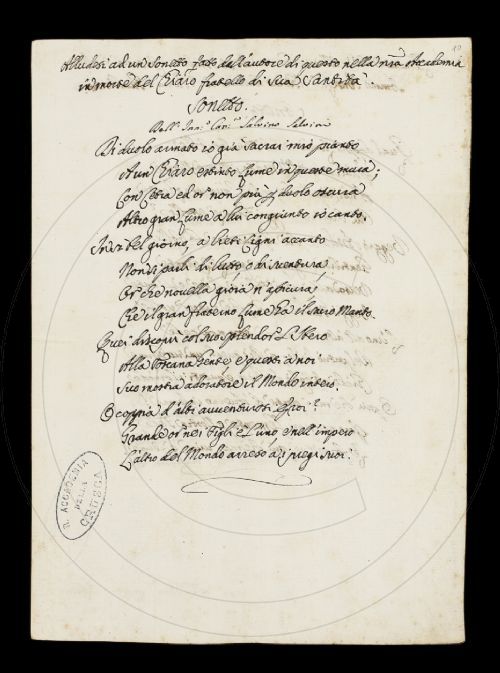 10
Alludesi ad un Sonetto fatto dall'autore di questo nella nrã Accademia
in morte del Chiaro fratello di Sua Santità.
Sonetto.
Dell' Inn.º Can.º Salvino Salvini
Di duolo armato io già sacrai mio pianto
A un Chiaro estinto Lume in queste mura;
Con Cetra ed or non più di duolo oscura
Altro gran Lume a lui congiunto io canto.
In sì bel giorno, a lieti Cigni accanto
Non si parli di lutto, o di sventura,
Or che novella gioia n'assicura,
Che il gran fraterno Lume ha il sacro Manto.
Quei discoprì col suo splendor
Alla Toscana Gente, e questi a noi
Suo mostra adoratore il Mondo intero.
O coppia d'alti avventurosi Eroi!
Grande or ne' Figli è l'uno, e nell'impero
L'altro del Mondo a i pregi suoi.
R. ACCADEMIA
DELLA
CRUSCA